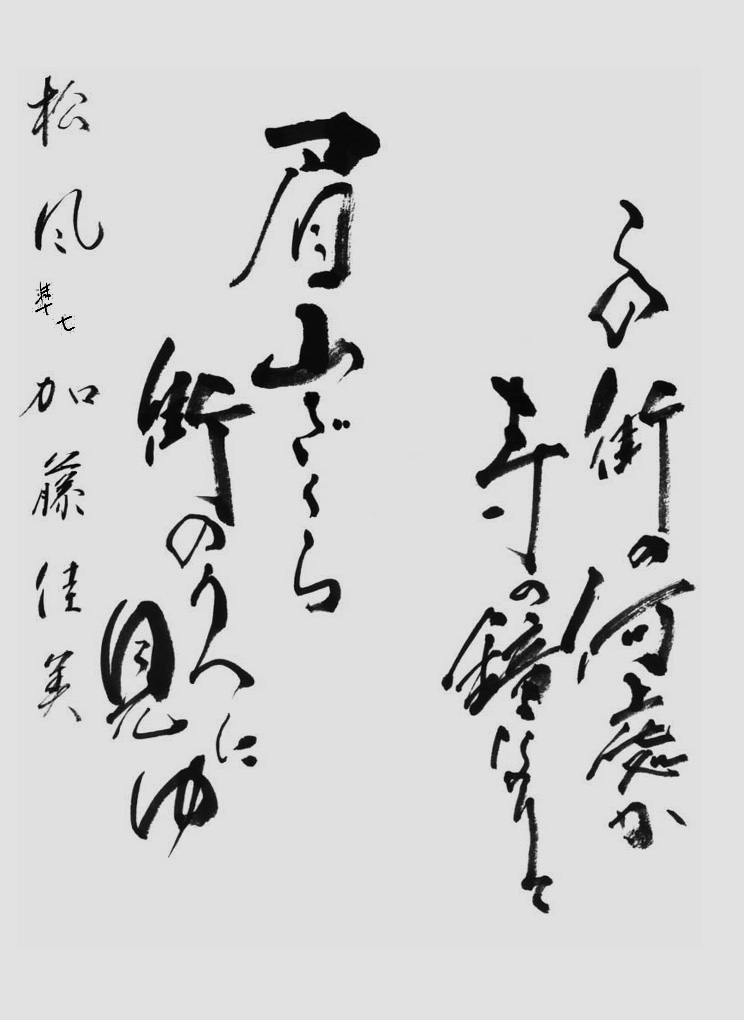 この街の何處か
寺の鐘
眉山ざくら
街のうへに
見ゆ
松風 準七 加藤佳美